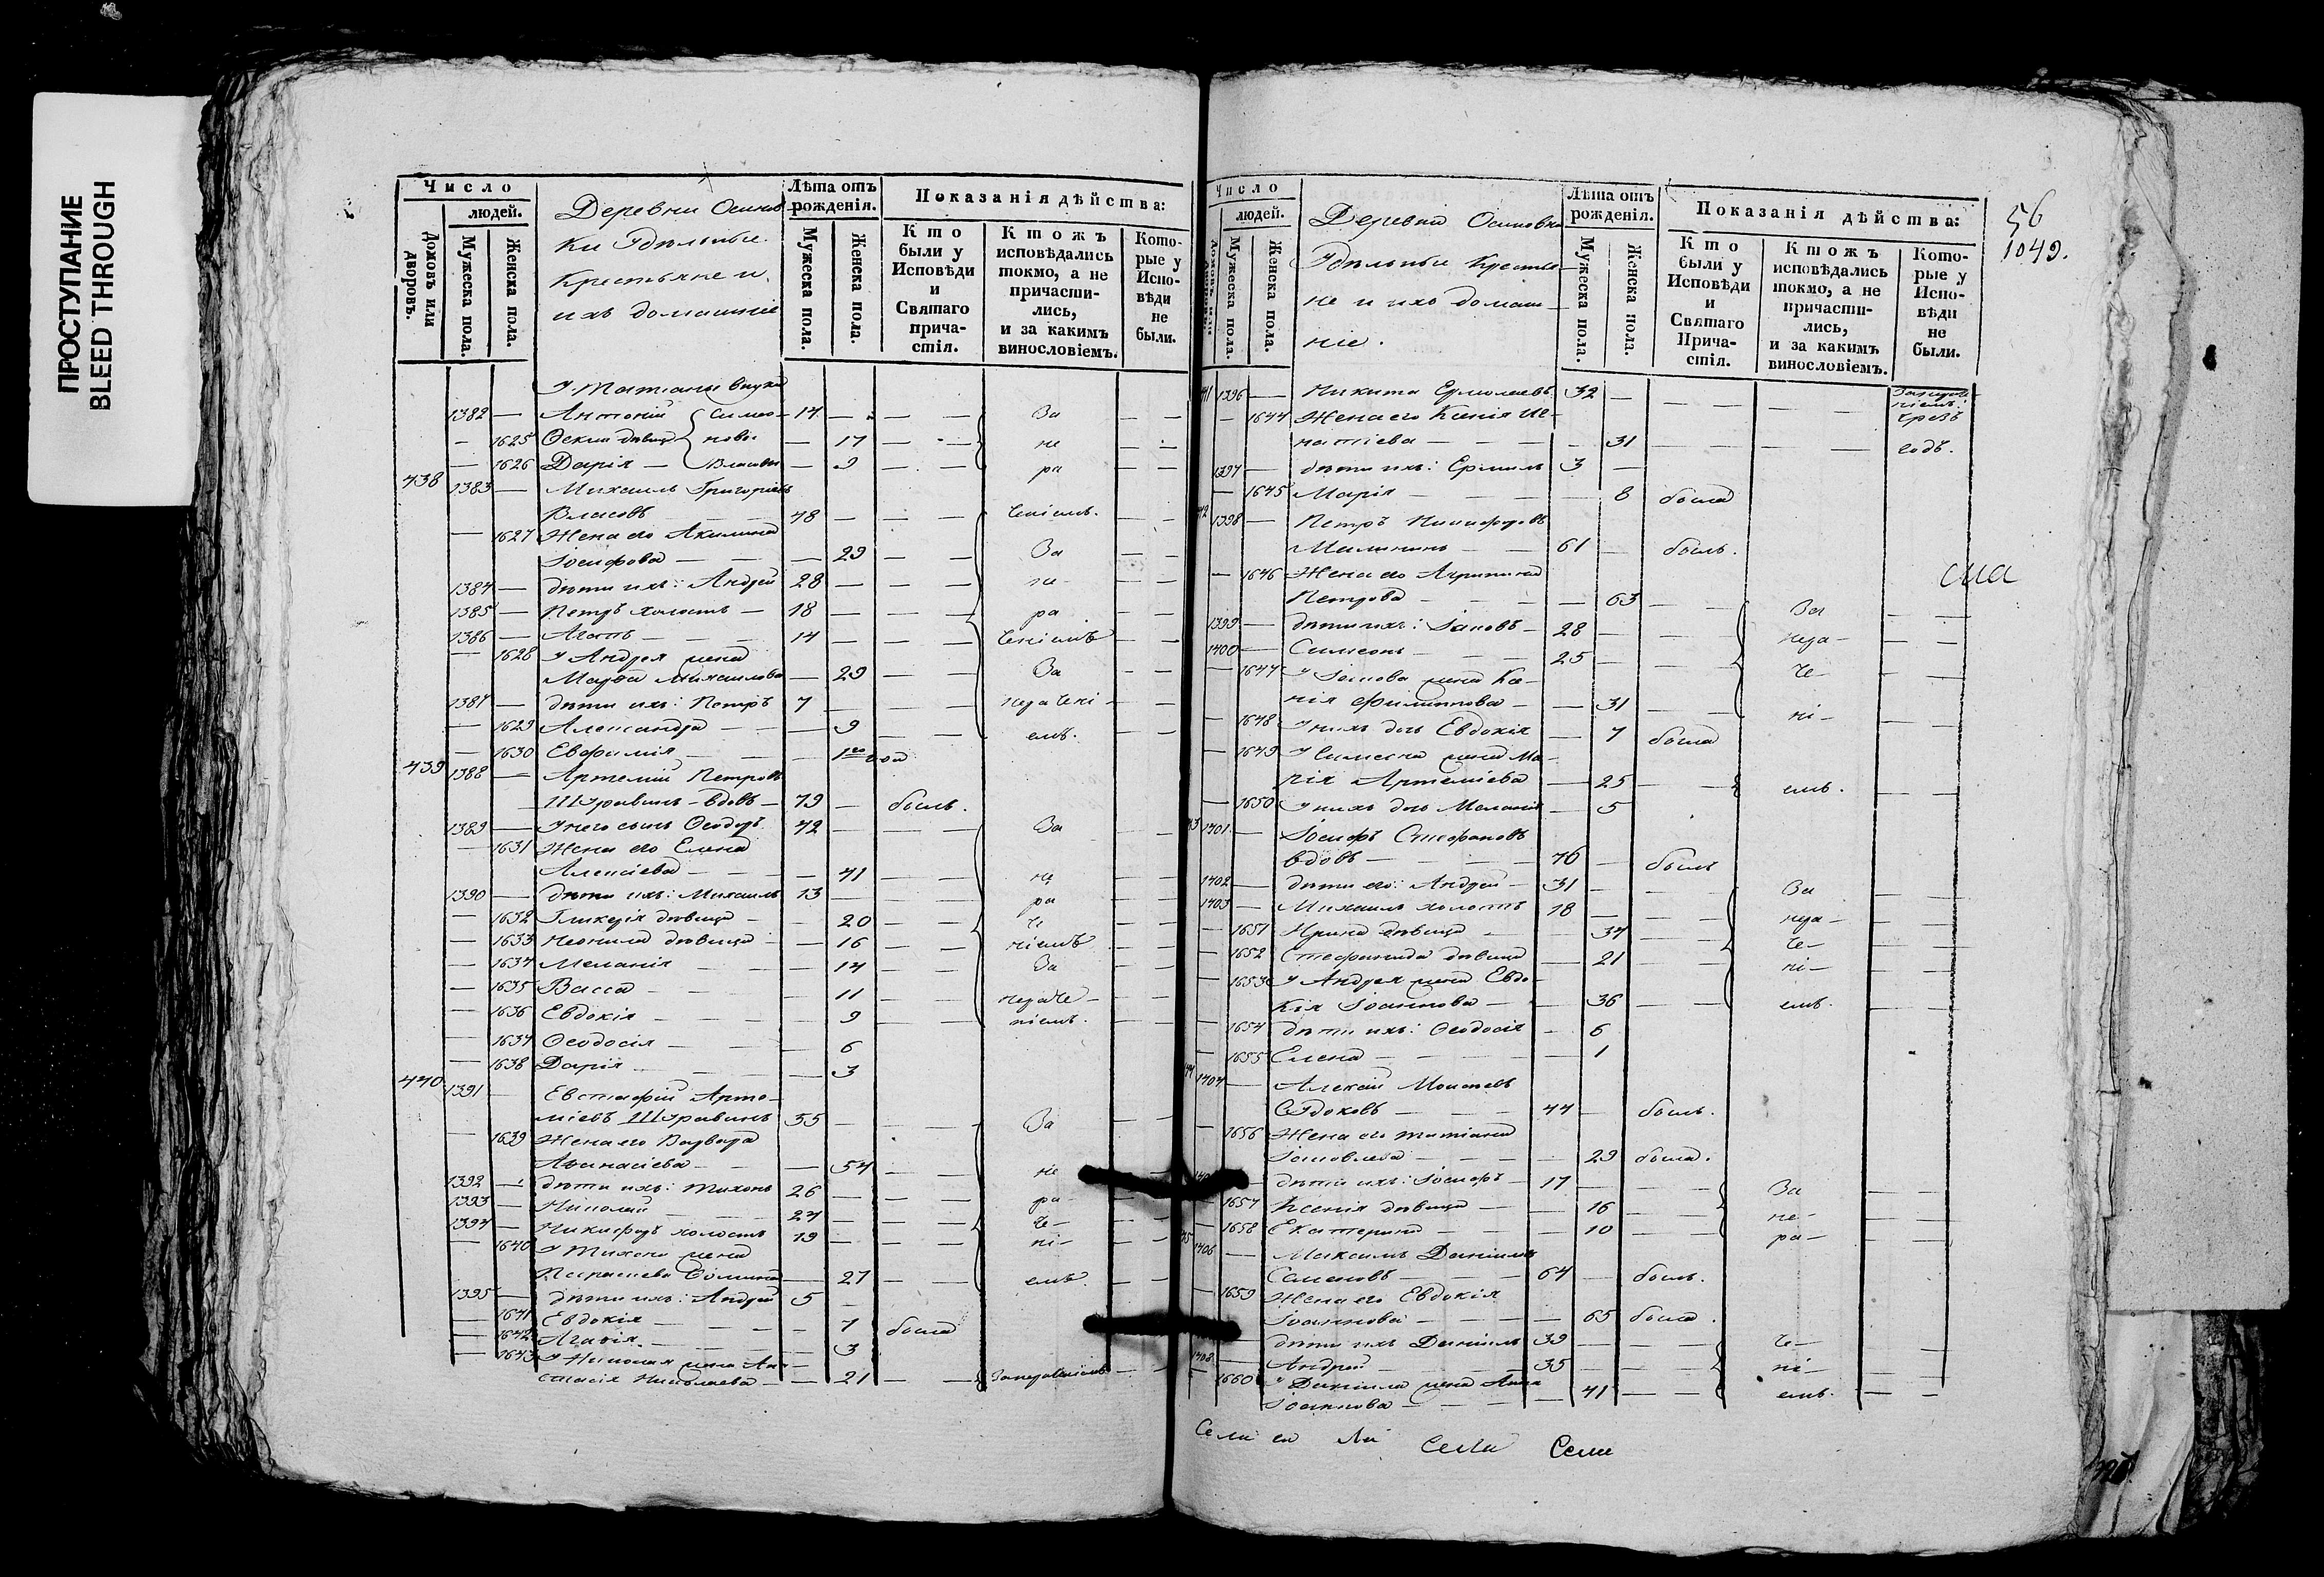 ПРОСТУПАНИЕ
BLEED THROUGH
Число
людей.
Домовъ или дворовъ.
Мужеска пола.
Женска пола.
Деревни Осинов
ки Удѣльные
Крестьяне и
ихъ домашніе
Лѣта отъ рожденія.
Мужеска пола.
Женска пола.
Показанія дѣйства:
Кто были у Исповѣди и Святаго причастія.
Ктожъ исповѣдались токмо, а не причастились, и за какимъ винословіемъ.
Которые у Исповѣди не были.
У Татіаны внуки
1382 — Антоній 14 — За
— 1625 дѣвица — 17 не
— 1626 Дарія — 9 ра
438 1383 — Михаилъ Григоріевъ
Власовъ 48 — ченіемъ.
— 1627 Жена его Акилина
Іосифова — 29 За
1384 — дѣти ихъ: Андрей 28 — не
1385 — Петръ холостъ — 18 — ра
1386 — 14 — ченіемъ
— 1628 У Андрея жена
Марѳа Михаилова — 29 За
1387 — дѣти ихъ: Петръ 7 нераченi-
— 1629 Александра — 9 емъ.
— 1630 Евфимія
439 1388 — Артемій Петровъ
Шуравинъ - вдовъ — 79 — былъ.
1389 — У него сынъ Ѳеодоръ 42 — За
— 1631 Жена его Елена
Алексіева — 41 не
1390 — дѣти ихъ: Михаилъ 13 ра
— 1632 Гликерія дѣвица — 20 че
— 1633 Неонила дѣвица — 16 ніемъ
— 1634 Меланія — 14 За
— 1635 Васса — 11 нераче-
— 1636 Евдокія — 9 ніемъ.
— 1637 Ѳеодосія — 6
— 1638 Дарія — 3
440 1391 — Евстафій Арте-
міевъ Шуравинъ 55 — За
— 1639 Жена его Варвара
Аѳанасіева — 54 не
1392 — дѣти ихъ: Тихонъ 26 ра-
1393 — Николай 24 че-
1394 — Никифоръ холостъ 19 ні-
— 1640 У Тихона жена
Параскева — 27 емъ
1395 — дѣти ихъ: Андрей 5 —
— 1641 Евдокія — 7 была
— 1642 Агафія — 3
— 1643 У Николая жена Ана-
стасія Николаева — 21 За нераченіемъ
56
1049.
Число
людей.
Мужеска пола.
Женска пола.
Деревни Осиновки
Удѣльные Крестья-
не и ихъ домаш-
ніе.
Лѣта отъ рожденія.
Мужеска пола.
Женска пола.
Показанія дѣйства:
Кто были у Исповѣди и Святаго Причастія.
Ктожъ исповѣдались токмо, а не причастились, и за какимъ винословіемъ.
Которые у Исповѣди не были.
41 1396 — Никита Ермолаевъ 32 —
— 1644 Жена его Ксенія Иг-
натіева — 31 годъ.
1397 — дѣти ихъ: Ермилъ 3 —
— 1645 Марія — 8 была
42 1398 — Петръ Никифоровъ
Малининъ 61 — былъ.
— 1646 Жена его Агрипина
Петрова — 63 За
1399 — дѣти ихъ: Іаковъ 28 нера-
1400 — Симеонъ 25 че-
— 1647 У Іакова жена Ксе-
нія Филиппова — 31 ні-
— 1648 У нихъ дочь Евдокія — 7 была
— 1649 У Симеона жена Ма-
рія Артеміева — 25 емъ.
— 1650 У нихъ дочь Меланія — 5
43 1401 — Іосифъ Стефановъ
вдовъ 76 — былъ
1402 — дѣти его: Андрей 31 — За
1403 — Михаилъ холостъ 18 — нера-
— 1651 Ирина дѣвица — 34 че-
— 1652 Стефанида дѣвица — 21 ні-
— 1653 У Андрея жена Евдо-
кія Іоаннова — 36 емъ.
— 1654 дѣти ихъ: Ѳеодосія — 6
— 1655 Елена — 1
44 1404 — Алексій Моисеевъ
44 — былъ.
— 1656 Жена его Татіана
Іаковлева — 29 была.
дѣти ихъ: Іосифъ 17 — За
— 1657 Ксенія дѣвица — 16 не-
— 1658 Екатерина — 10 ра-
45 1406 — Максимъ Даніиловъ
Семеновъ 64 — былъ.
— 1659 Жена его Евдокія
Іоаннова — 65 была.
дѣти ихъ Даніилъ 39 — че-
1408 — Андрей 35 — ні-
— 1660 У Даніила жена Анна
Іоаннова — 41 емъ.
сла
Сели